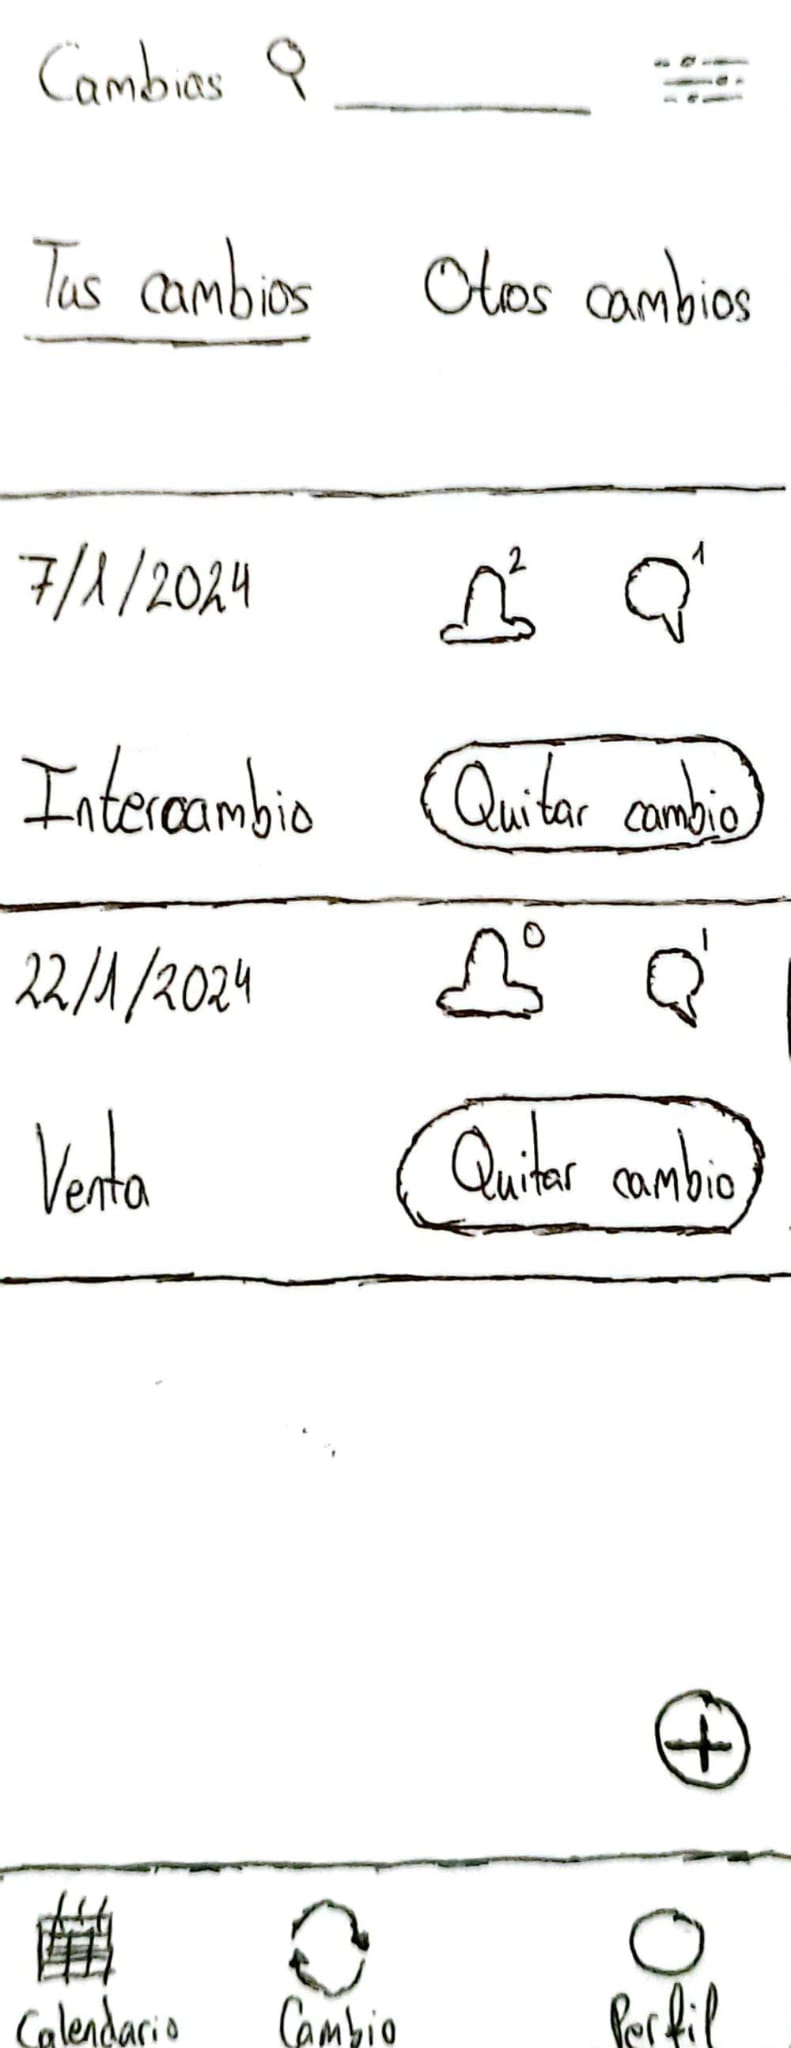 Cambios
Tus cambios Otros cambios
7/1/2024 2 1
Intercambio Quitar cambio
22/1/2024 0 1
Venta Quitar cambio
Calendario Cambio Perfil